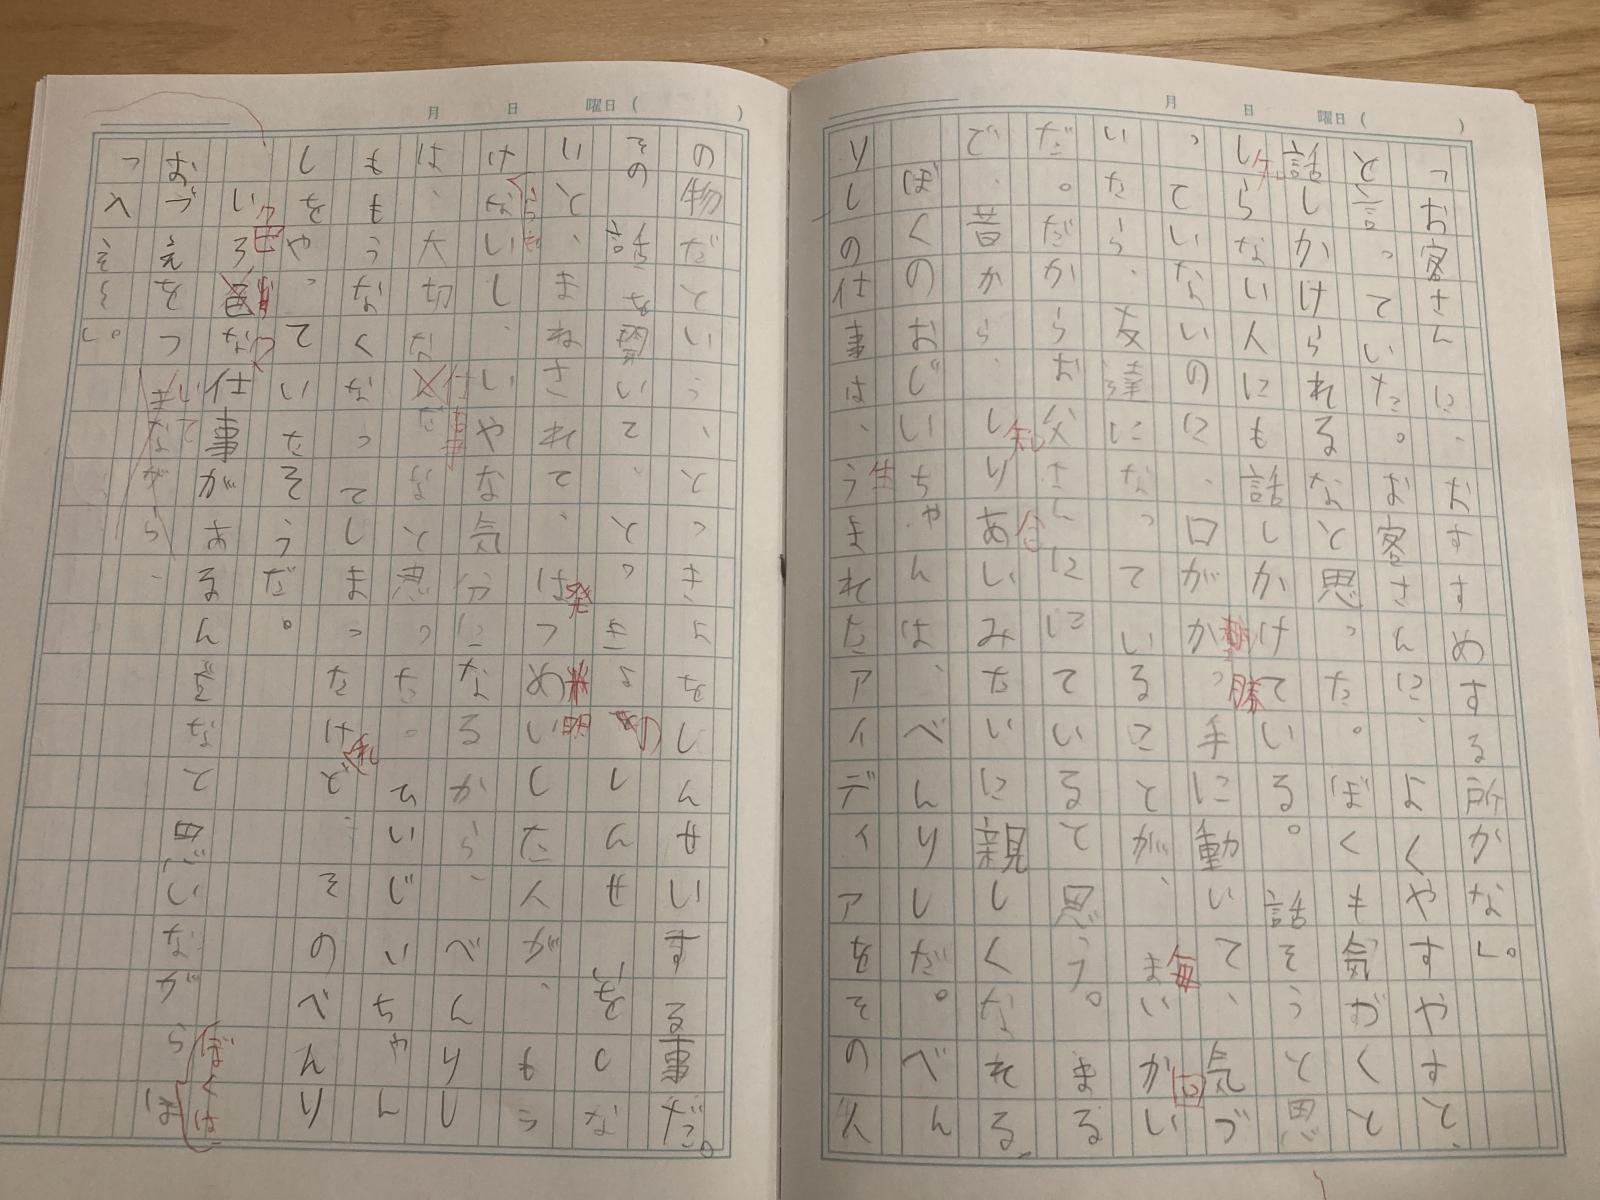 「お客さんに、おすすめする所がない」。
と言っていた。お客さんに、よくやすやすと、
話しかけられるなと思った。ぼくも気がくと
しらない人にも話しかけている。話そうと思
っていないのに、口がかっ手に動いて、気づ
いたら、友達になっていると が、まいかい
だ。だから、お父さんににているて思う。まる
で、昔からしりあいみたいに親しくなれる。
ぼくのおじいちゃんは、べんりしだ。べん
りしの仕事は、うまれたアイディアをその人
知
勝
毎
回
知
合
生
の物だという、とっきょをしんせいする事だ。
その話を聞いて、とっきょしんせいをしな
いと、まねされて、はつめいした人が、もう
けない し、いやな気分になるから、べんりし
は、大切な仕事だなと思った。ひいじいちゃん
も、もうなくなってしまったけど、そのべんり
しをやっていたそうだ。
いろ な仕事があるんだなと思いながら
ぼくは
「へえ